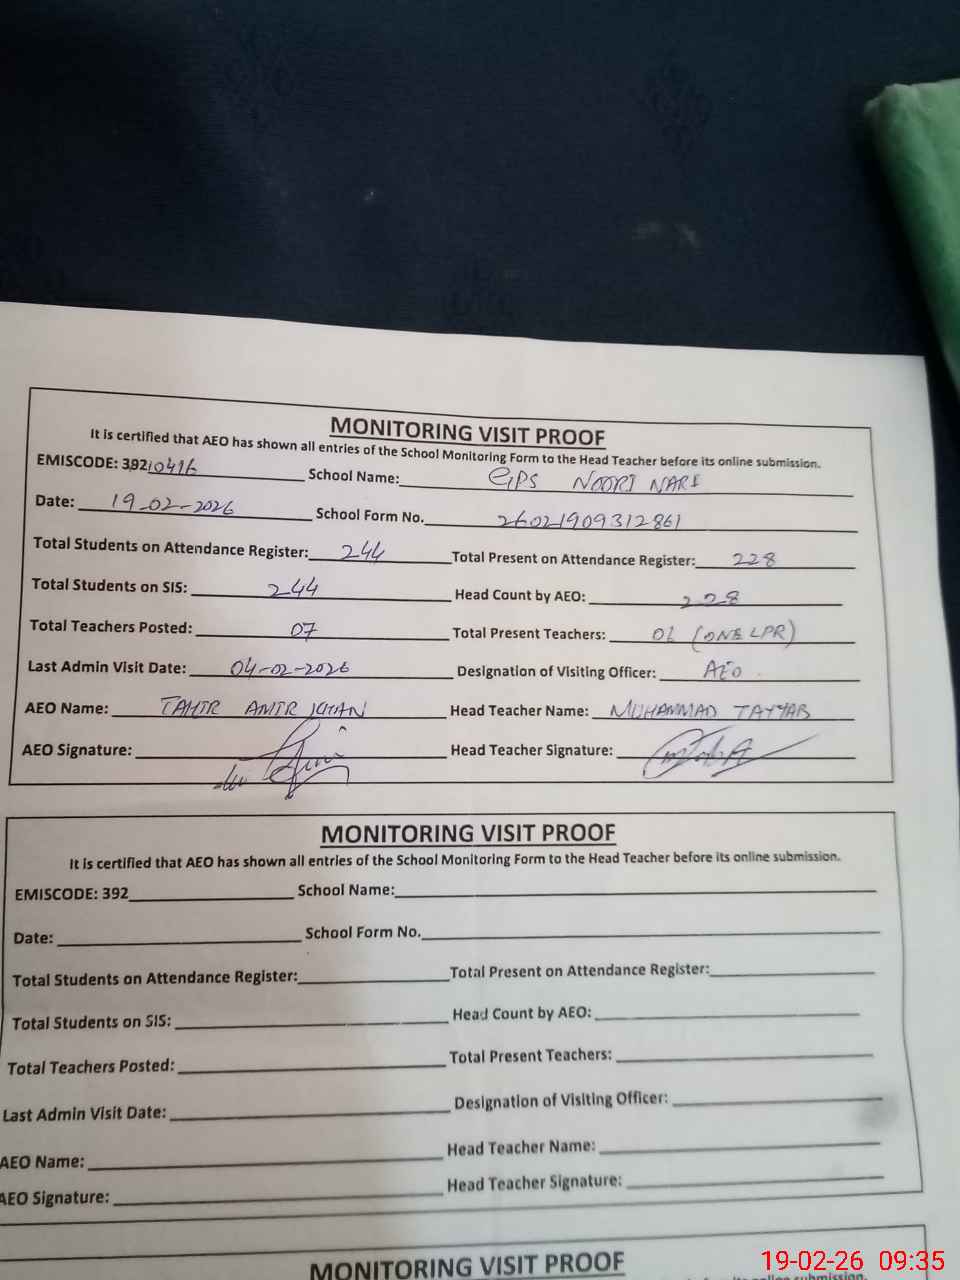 MONITORING VISIT PROOF
It is certified that AEO has shown all entries of the School Monitoring Form to the Head Teacher before its online submission.
EMISCODE: 39210416 School Name: GPS NOORI NARI
Date: 19-02-2026 School Form No. 26021909312861
Total Students on Attendance Register: 244 Total Present on Attendance Register: 228
Total Students on SIS: 244 Head Count by AEO: 228
Total Teachers Posted: 07 Total Present Teachers: 06 (ONE LPR)
Last Admin Visit Date: 04-02-2026 Designation of Visiting Officer: AEO
AEO Name: TAHIR AMIR KHAN Head Teacher Name: MUHAMMAD TAYYAB
AEO Signature: Head Teacher Signature:
MONITORING VISIT PROOF
It is certified that AEO has shown all entries of the School Monitoring Form to the Head Teacher before its online submission.
EMISCODE: 392 School Name:
Date: School Form No.
Total Students on Attendance Register: Total Present on Attendance Register:
Total Students on SIS: Head Count by AEO:
Total Teachers Posted: Total Present Teachers:
Last Admin Visit Date: Designation of Visiting Officer:
AEO Name: Head Teacher Name:
AEO Signature: Head Teacher Signature:
MONITORING VISIT PROOF
online submission.
19-02-26 09:35